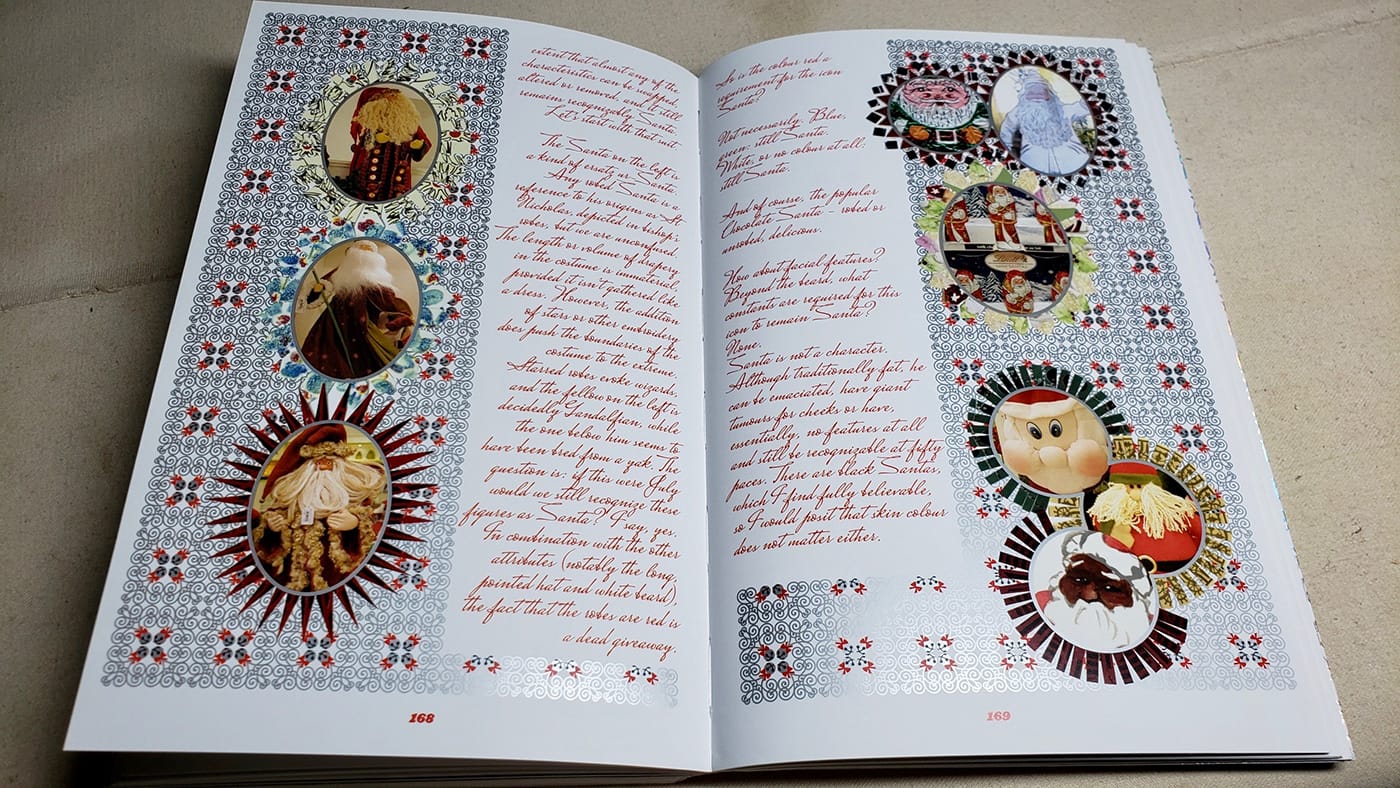 extent that almost any of the
characteristics can be swapped,
altered or removed, and it still
remains recognizably Santa.
Let's start with that suit.
The Santa on the left is
a kind of ersatz ur-Santa.
Any robed Santa is a
reference to his origins as St
Nicholas, depicted in bishop's
robes, but we are unconfused.
The length or volume of drapery
in the costume is immaterial,
provided it isn't gathered like
a dress. However, the addition
of stars or other embroidery
does push the boundaries of the
costume to the extreme.
Starred robes evoke wizards,
and the fellow on the left is
decidedly Gandalfian, while
the one below him seems to
have been bred from a yak. The
question is: if this were July
would we still recognize these
figures as Santa? I say, yes.
In combination with the other
attributes (notably the long,
pointed hat and white beard),
the fact that the robes are red is
a dead giveaway.
168
So is the colour red a
requirement for the icon
Santa?
Not necessarily. Blue,
green: still Santa.
White, or no colour at all:
still Santa.
And of course, the popular
Chocolate Santa – robed or
unrobed, delicious.
How about facial features?
Beyond the beard, what
constants are required for this
icon to remain Santa?
None.
Santa is not a character.
Although traditionally fat, he
can be emaciated, have giant
tumours for cheeks or have,
essentially, no features at all
and still be recognizable at fifty
paces. There are black Santas,
which I find fully believable,
so I would posit that skin colour
does not matter either.
Lindt
169